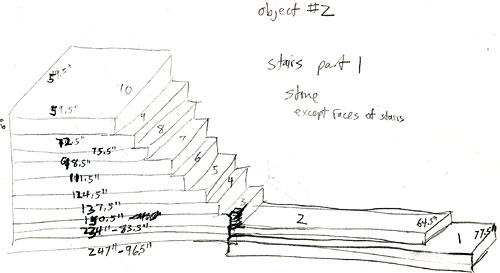 object #2
stairs part 1
stone
except faces of stairs
59.5"
10
59.5"
9
72.5"
8
75.5"
7
98.5"
6
111.5"
5
124.5"
4
137.5"
3
150.5"
2
64.5"
1
77.5"
234"-83.5"
247"-96.5"